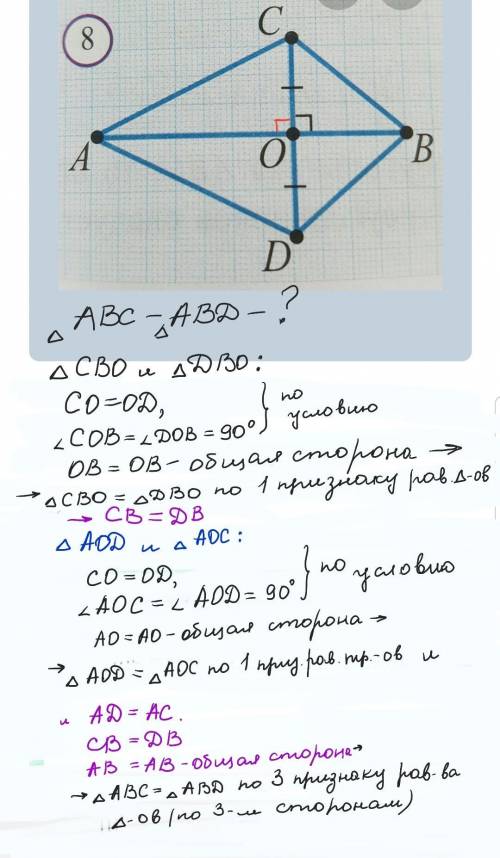 8
C
A
O
B
D
△ ABC - △ ABD - ?
△ CBO и △ DBO:
CO=OD,
∠COB=∠DOB=90° } по условию
OB=OB - общая сторона →
→ △CBO=△DBO по 1 признаку рав. △-ов
→ CB=DB
△ AOD и △ AOC:
CO=OD,
∠AOC=∠AOD=90° } по условию
AO=AO - общая сторона →
→ △AOD=△AOC по 1 приз. рав. тр.-ов и
и AD=AC.
CB=DB
AB=AB - общая сторона →
→ △ABC=△ABD по 3 признаку рав-ва
△-ов (по 3-м сторонам)